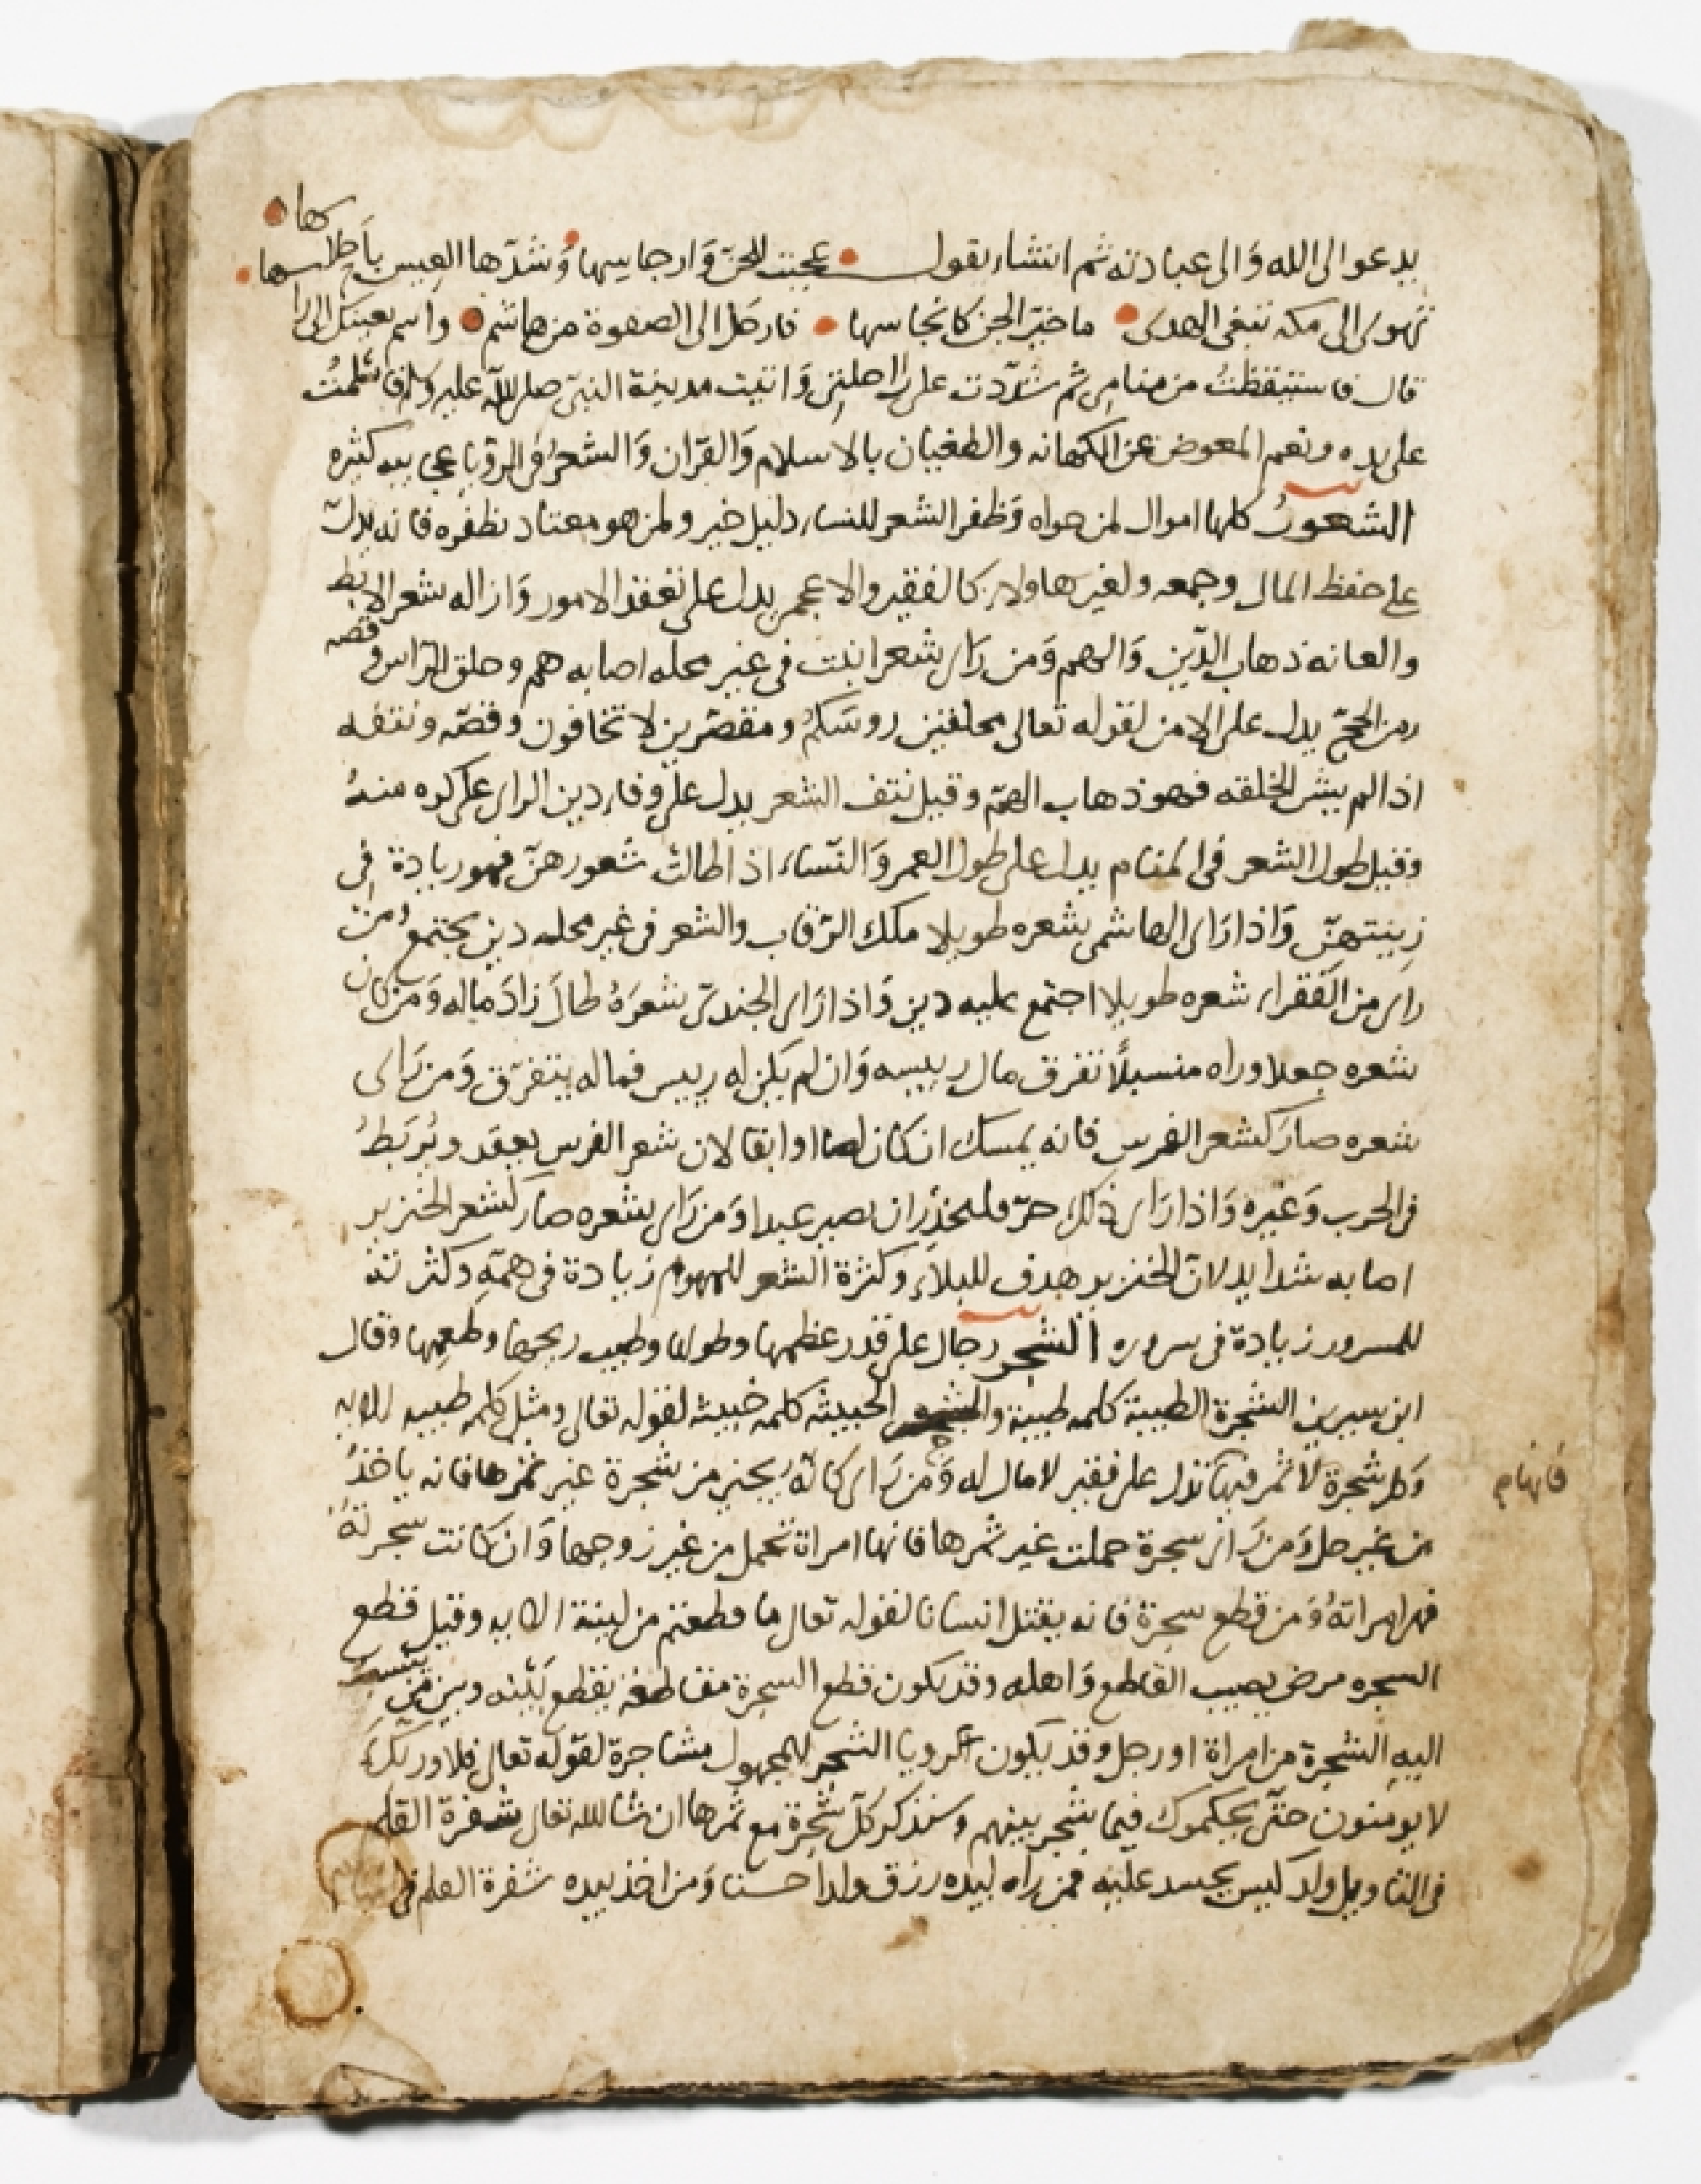 يدعوا الى الله وَالى عبادته ثم انشاء يقول عجبت للجنّ وَارجاسها وُشدّها العِيس باَحلاسها
تهوى الى مكه تبغى الهدى ما خيّر الجن كانجاسها فارحَل الى الصفوة من هاشم واسم بعينيك الى راسها
قال فاستيقظتُ من منامى ثم شدّدت على راحلتى وَاتيت مدينة النبىّ صلى الله عليه وسلم فاسلمتُ
على يده ونعم المعوض عن الكهانه والطغيان بالاسلام وَالقرَان وَالشعرُ فى الروَيا عجايبه كثيره
الشعورُ كلها اموال لمن حواه وَظفر الشعر للنساء دليل خير ولمن هو معتاد بظفره فانه يدلّ
على حفظ المال وجمعه ولغيرها ولاء كالفقير والاعجمى يدل على تعقد الامور وَازاله شعر الابط
والعانه ذهاب الدّين وَالهم وَمن رَاى شعرا نبت فى غير محله اصابه هم وحلق الرّاس وقصه
زمن الحجّ يدل على الامن لقوله تعالى محلقين روسَكمُ ومقصّرين لا تخافون وقصّه ونتفه
اذا لم يشن الخلقه فهو ذهاب الهمّ وقيل نتف الشعر يدل على وفاء دين الراى على كره منهُ
وقيل طول الشعر فى المنام يدل على طول العمر وَالنّساء اذا طالت شعورهنّ فهو زيادة فى
زينتهنّ وَاذا رَاى الهاشمى شعره طويلا ملك الرّقاب والشعر فى غير محله دين يجتمع وُمن
راى من الفقراء شعره طويلا اجتمع عليه دين وَاذا رَاى الجندىّ شعرَهُ طالَ زادَ ماله وَمن كان
شعره جعدا وراه منسبلًا تفرق مال رييسه وَان لم يكن له رييس فماله يتفرّق وَمن رَاى
شعره صارَ كشعر الفرس فانه يمسك ان كان لصا او ابقا لان شعر الفرس يعقد ويُربَطُ
فى الحرب وَغيره وَاذا رَاى ذلك حرّ فليحذر ان يصير عبدا وَمن رَاى شعره صارَ كشعر الخنزير
اصابه شدايد لانّ الخنزير هدف للبلاء وكثرة الشعر للمهموم زيادة فى همّهِ وكثرته
للمسرور زيادة فى سروره الشجر رجال على قدر عظمها وطولها وطيب ريحها وطعمِها وقال
ابن سيرين الشجرة الطيبة كلمه طيبة والشجره الخبيثه كلمه خبيثه لقوله تعالى ومثل كلمه طيبه الايه
وَكل شجرة لا ثمر فيها تدل على فقير لا مال له وَمن رَاى كانّه يجنى من شجرة غير ثمرها فانه ياخذُ
فانهام
من غير حل وَمن رَاى شجرة حملت غير ثمرها فانها امراة تحمل من غير زوجها وَان كانت شجرته
فهى امراتهُ وَمن قطع شجرة فانه يقتل انسانا لقوله تعالى ما قطعتم من لينة الايه وقيل قطع
الشجره مرض يصيب القاطع وَاهله وقد يكون قطع الشجرة مقاطعة يقطع بَيْنه وبين من ينسب
اليهِ الشجرة من امراة او رجل وقد يكون الرويا الشجر المجهول مشاجرة لقوله تعالى فلا وربّكَ
لا يومنون حتّى يحكموك فيما شجر بينهم وسنذكر كلّ شجرة مع ثمرها ان شا الله تعالى شفرة القلم
فى التاويل ولد كيس يحسد عليه فمن راه بيده رزق ولدا حسنا وَمن اخذ بيده شفرة القلم فى